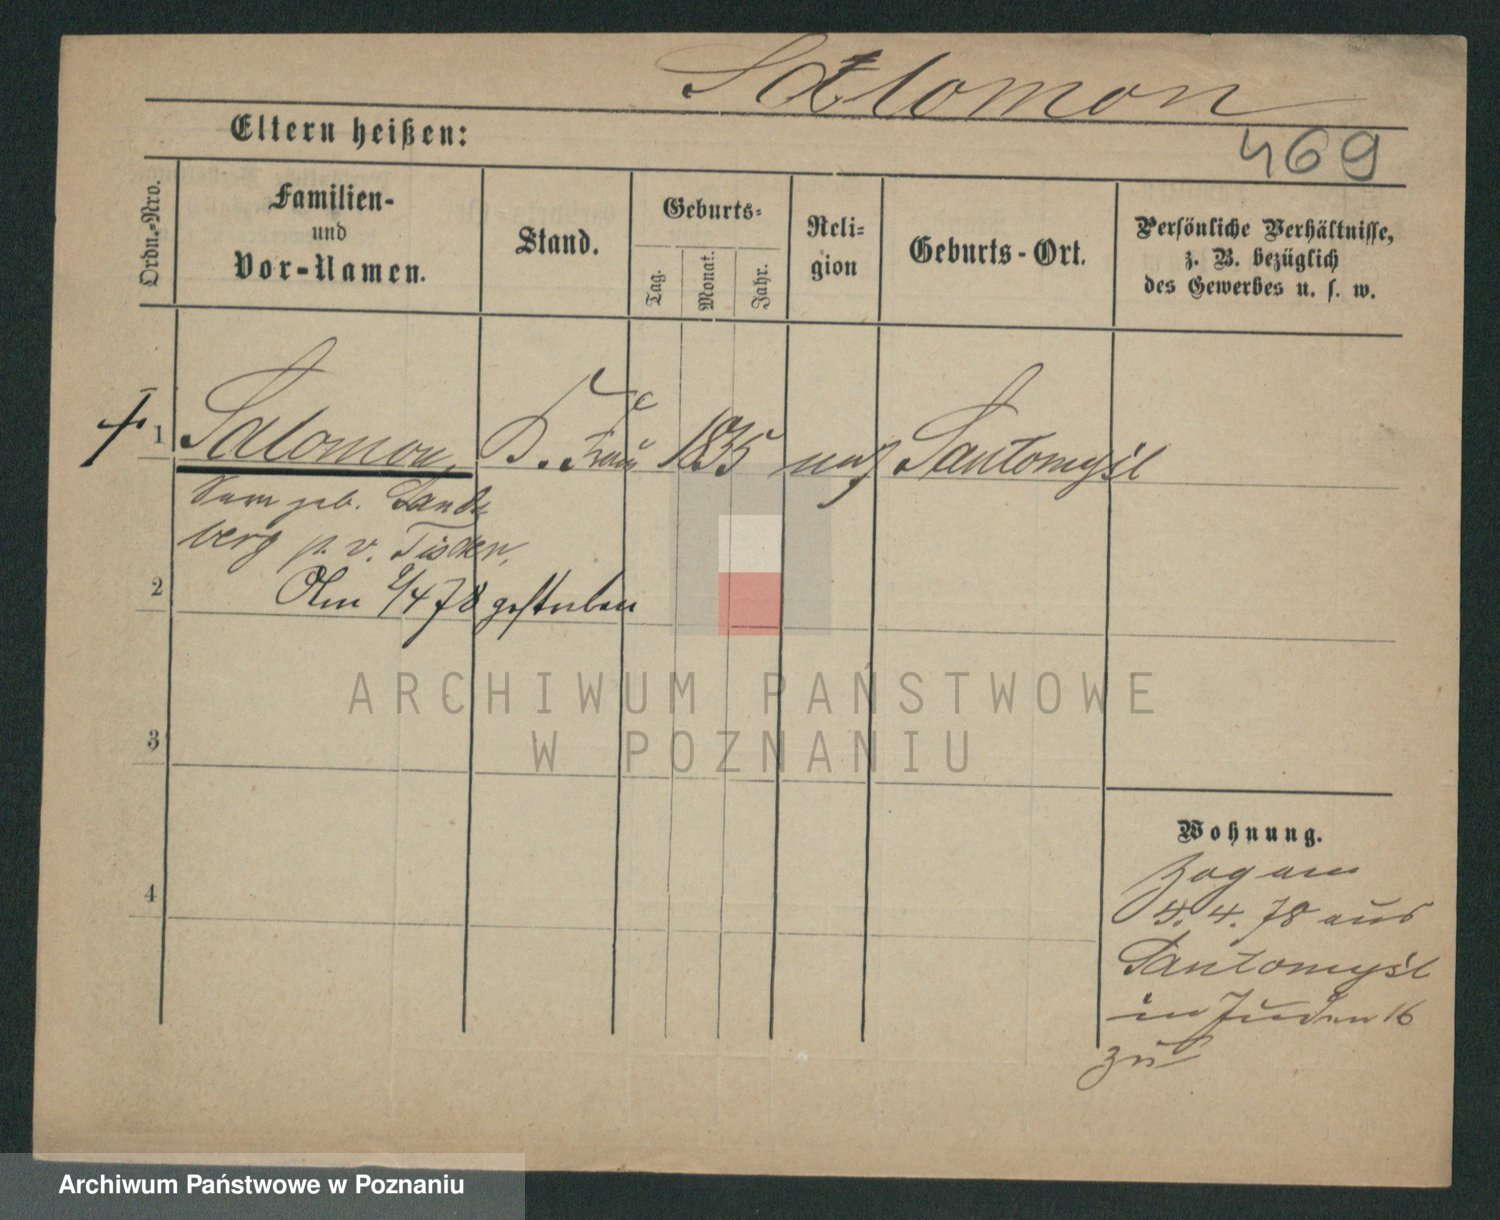 Salomon
469
Eltern heißen:
Ordn.-Nro.
Familien-
und
Vor-Namen.
Stand.
Geburts-
Tag.
Monat.
Jahr.
Reli-
gion
Geburts-Ort.
Persönliche Verhältnisse,
z. B. bezüglich
des Gewerbes u. s. w.
1 Salomon, 1835 Santomyśl
geb. Lands
berg p. v.
2
4 78 gestorben
3
4
Wohnung.
Zog am
5. 4. 78 aus
Santomyśl
in Juden 16
zu
ARCHIWUM PAŃSTWOWE
W POZNANIU
Archiwum Państwowe w Poznaniu